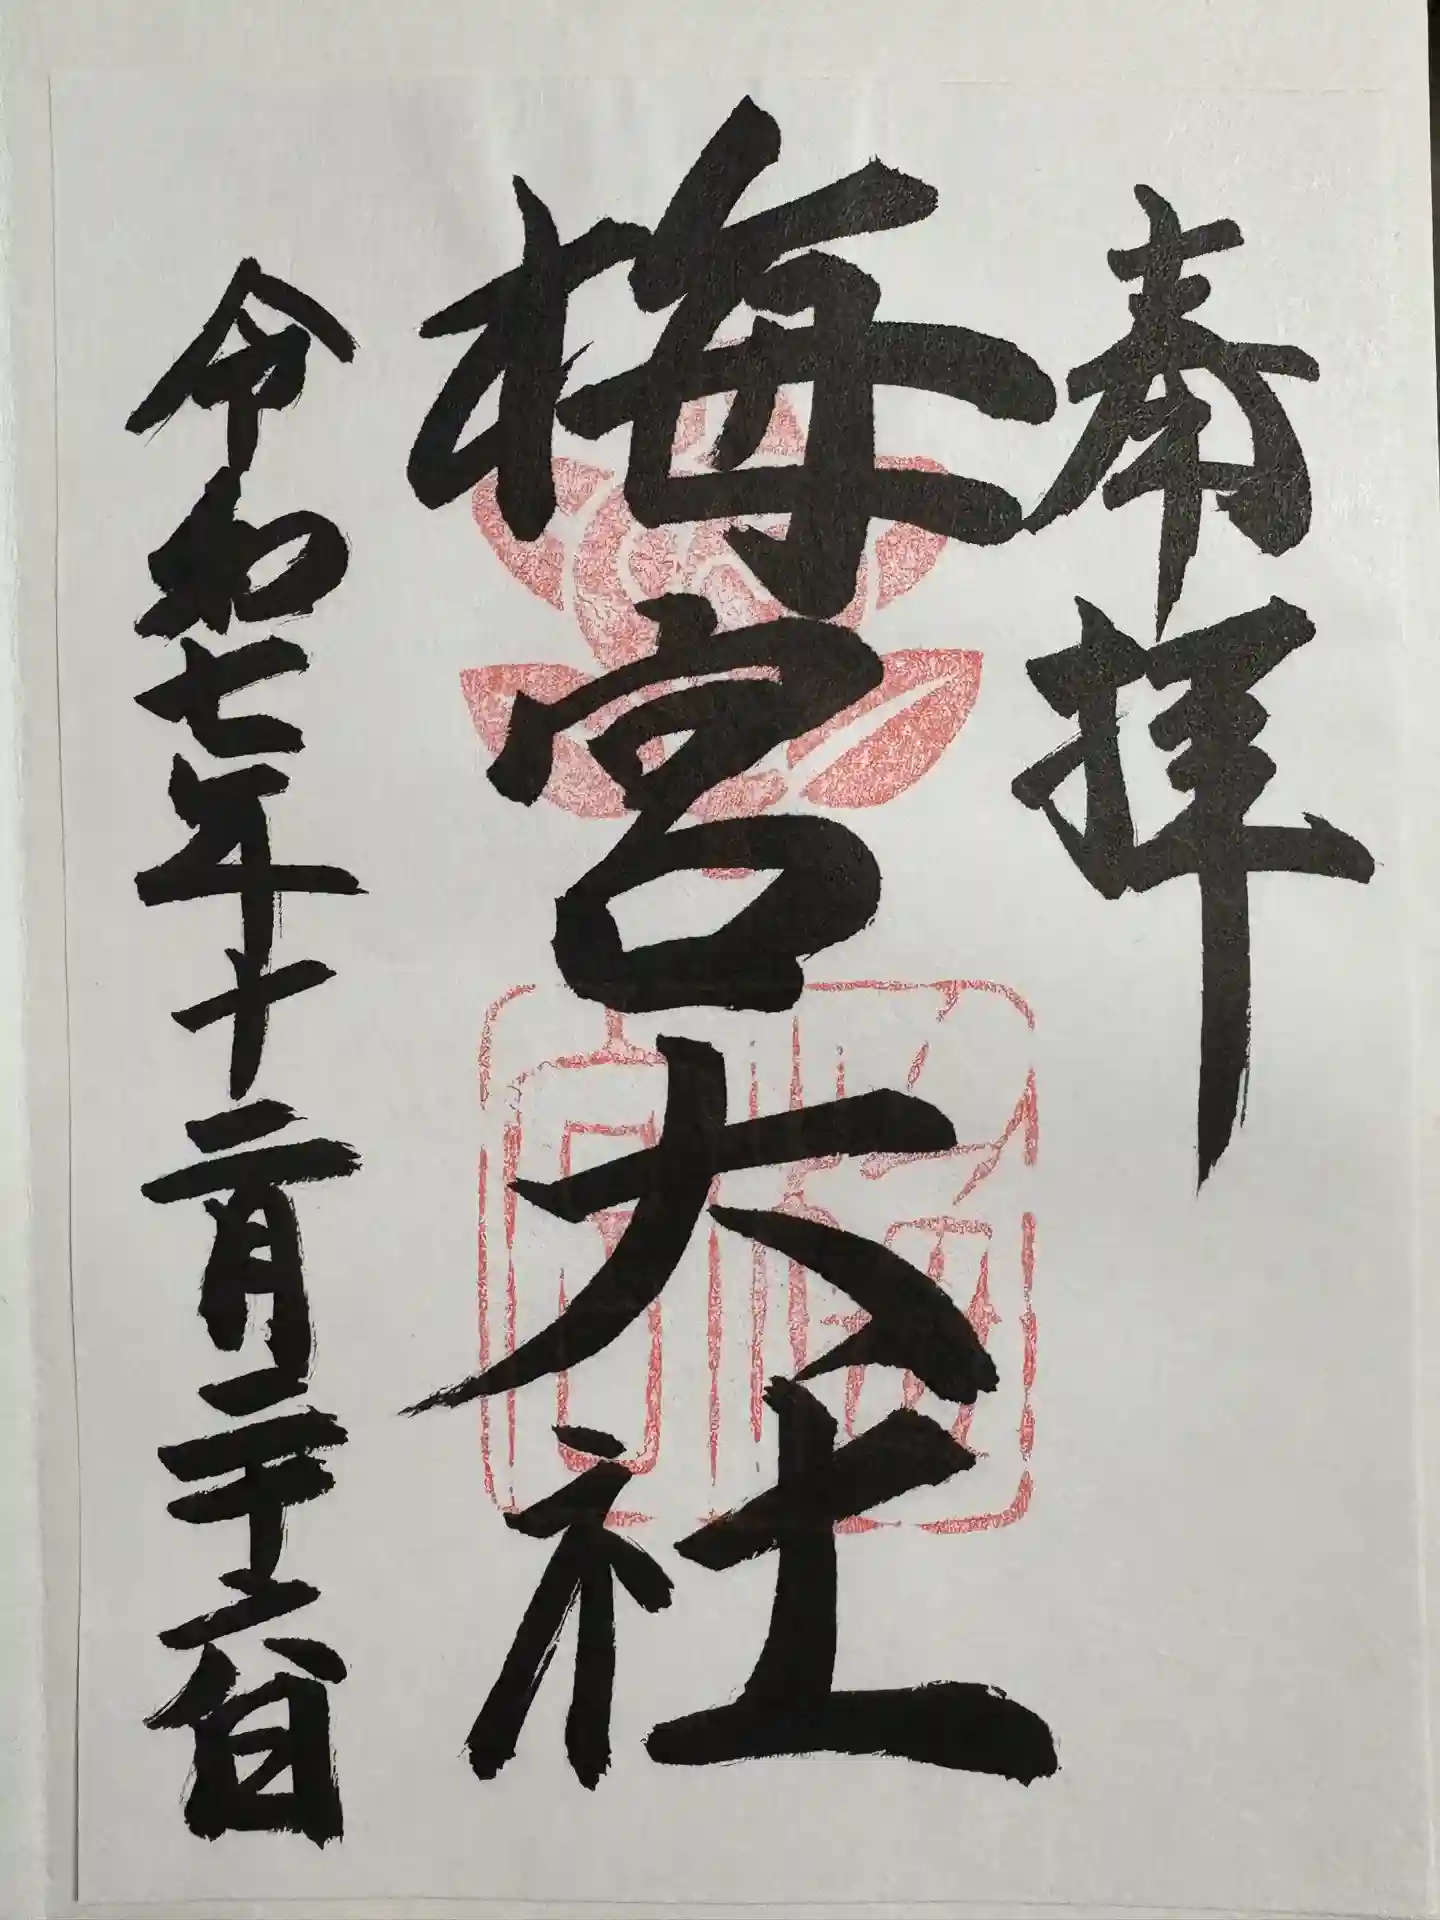 奉拝
梅宮大社
令和七年十二月二十六日